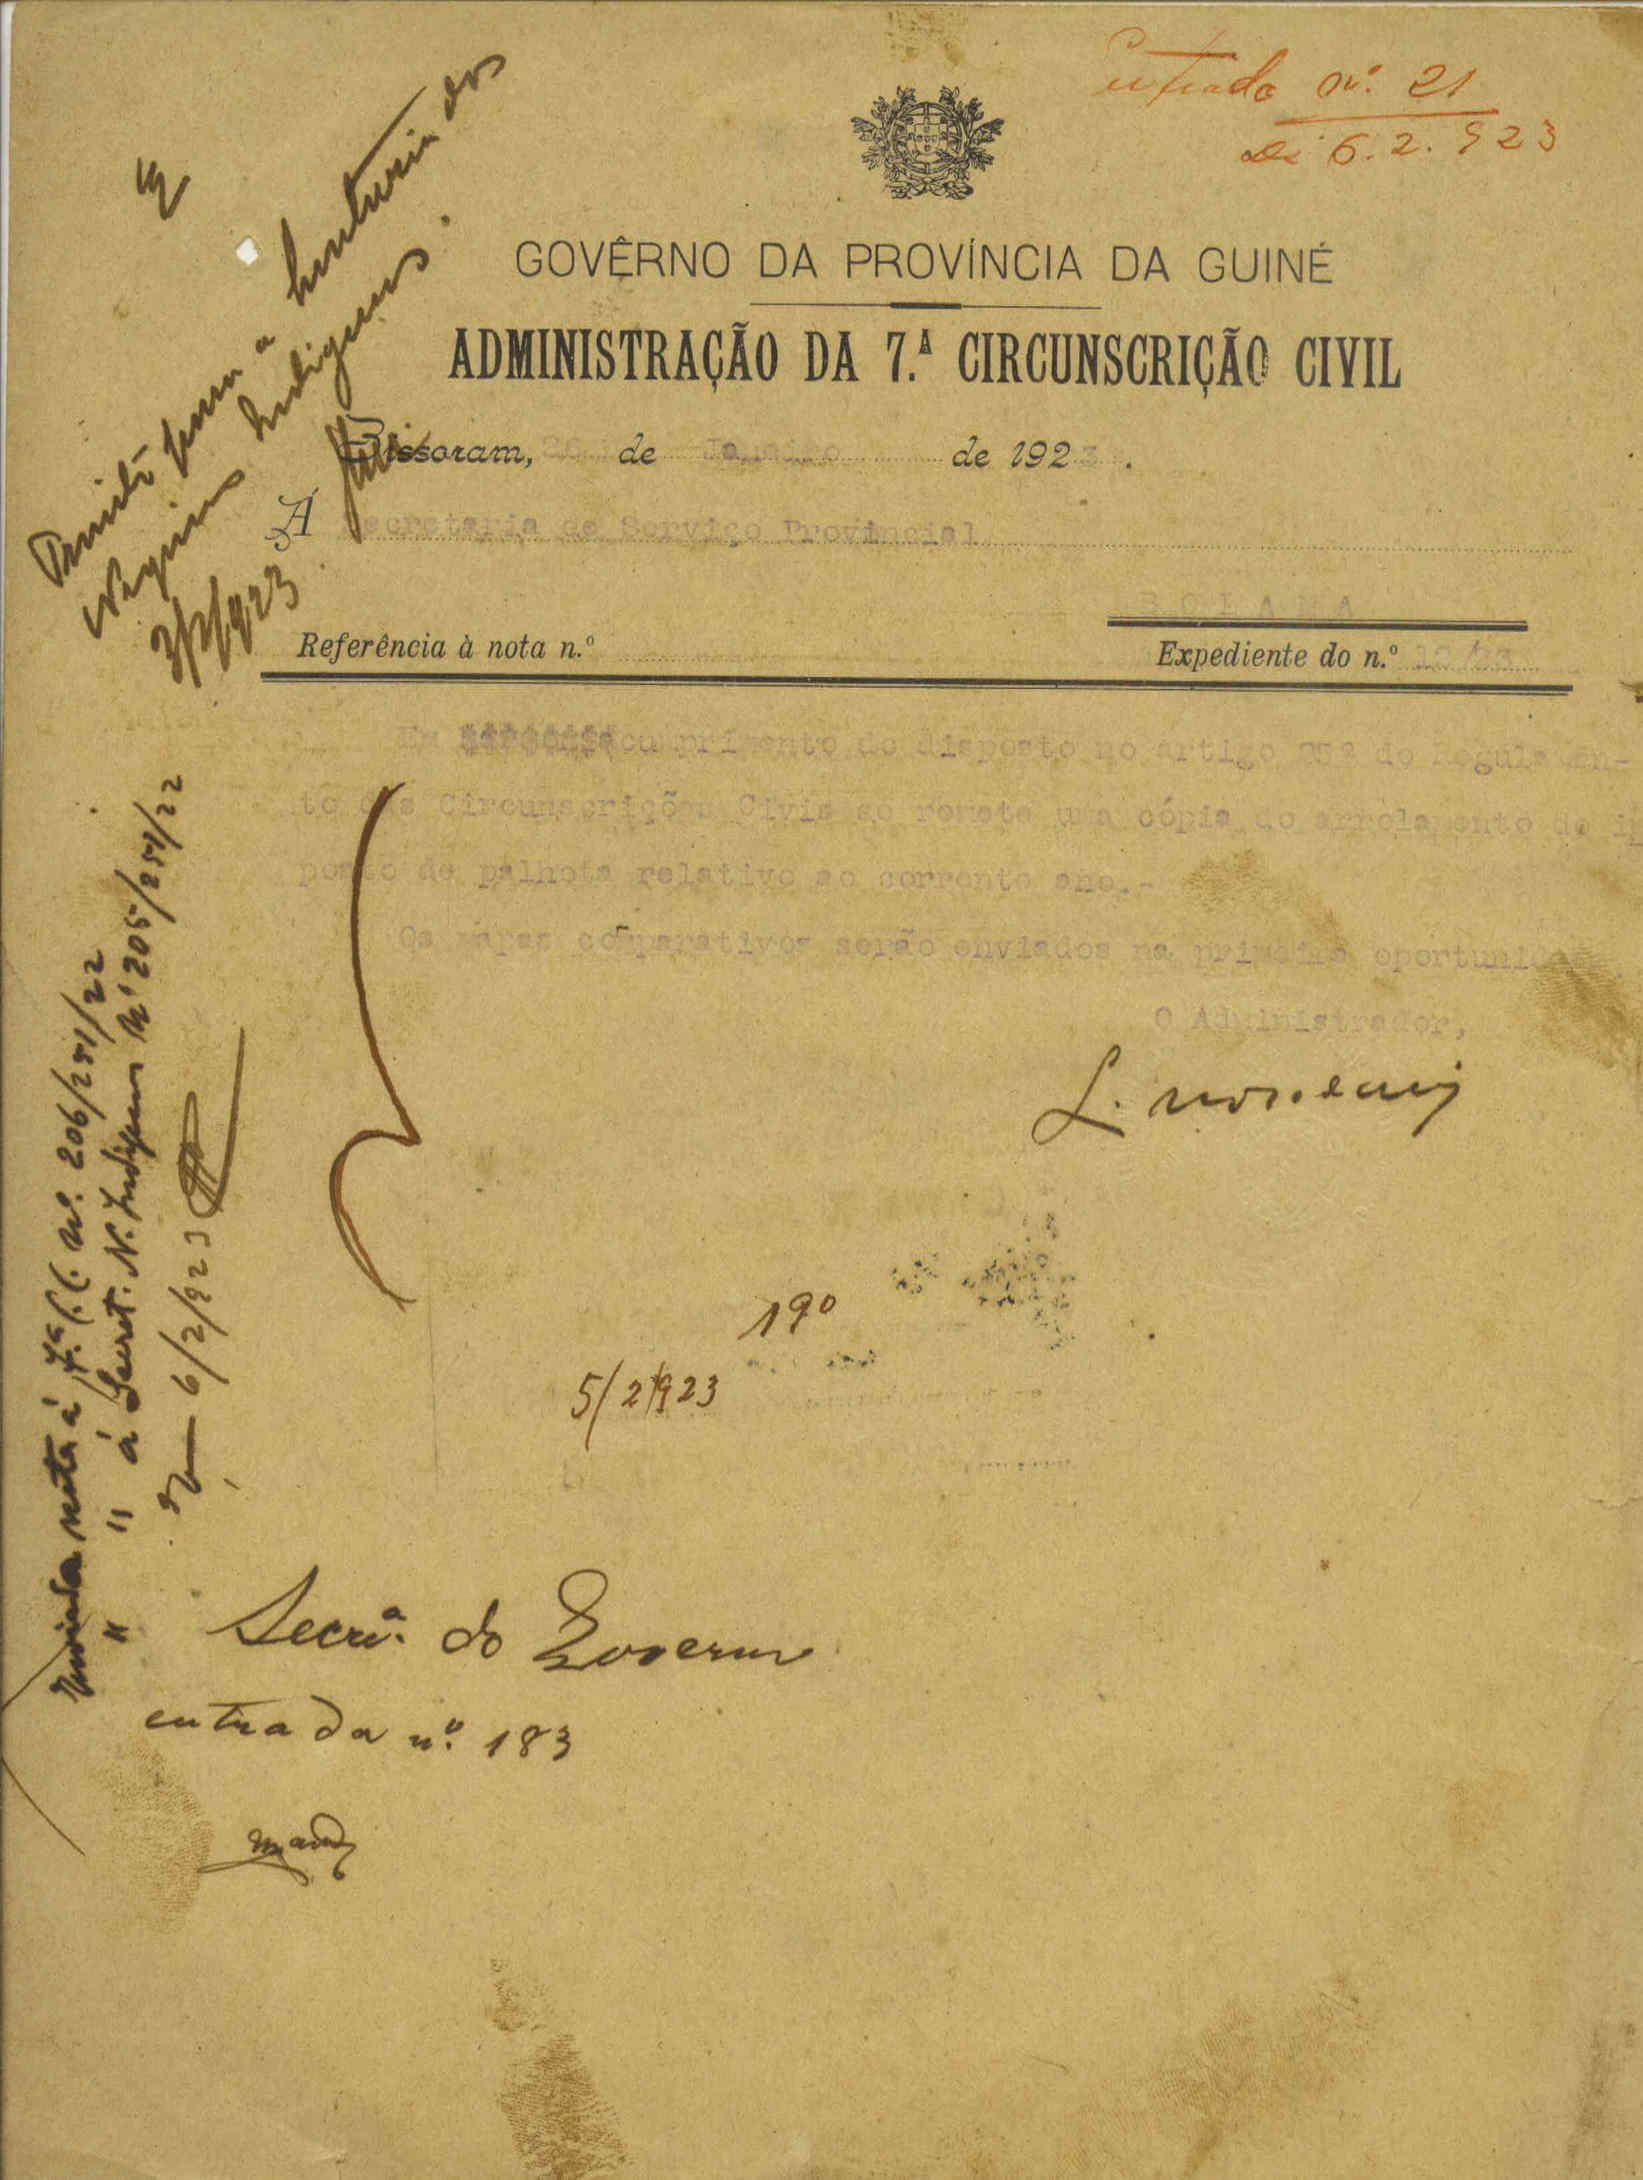 Entrada nº. 21
de 6.2.923
GOVÊRNO DA PROVÍNCIA DA GUINÉ
ADMINISTRAÇÃO DA 7.ª CIRCUNSCRIÇÃO CIVIL
Bissoram, 26 de Janeiro de 1923.
Á Secretaria de Serviço Provincial
BOLAMA
Referência à nota n.º
Expediente do n.º
Em cumprimento do disposto no artigo do Regulamen-
to das Circunscrições Civis se remete uma cópia do arrolamento do im
posto de palhota relativo ao corrente ano.-
Os mapas comparativos serão enviados na primeira oportunidade.
O Administrador,
Negocios Indigenas.
3/2/923
Enviada nota á 7.ª C.C. nº. 206/251/22
" " á Secret. N. Indigenas nº 205/251/22
Em 6/2/923
19º
5/2/923
Secrª. do Governo
entrada nº. 183